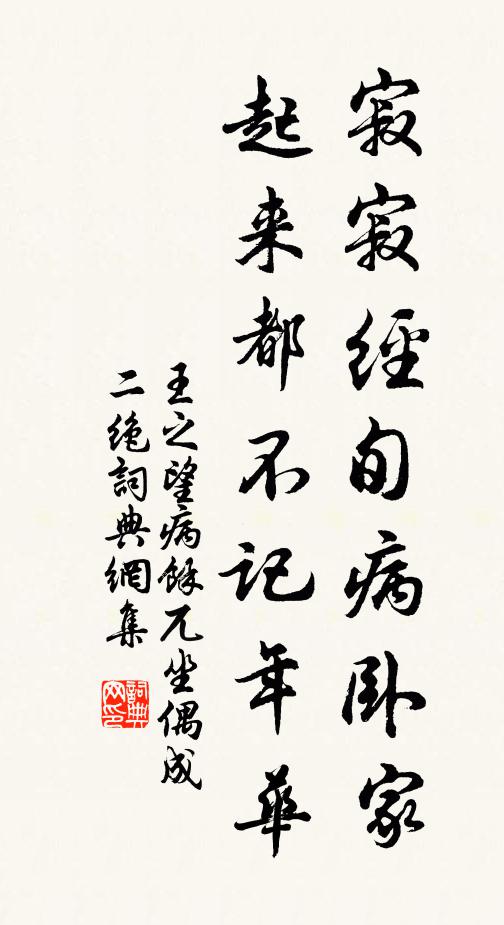 寂寂經旬病卧家
起来都不記年華
王之望病餘兀坐偶成
二絶詞典網集
詞典
网印